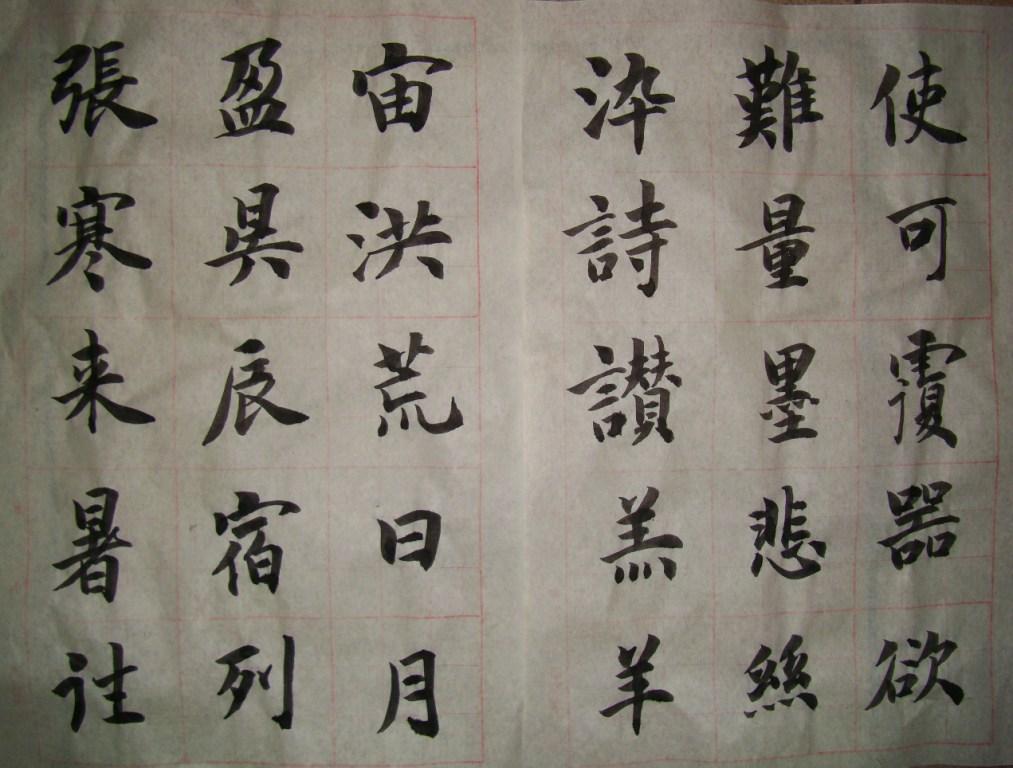 使可覆器欲
難量墨悲絲
染詩讃羔羊
宙洪荒日月
盈昃辰宿列
張寒来暑往